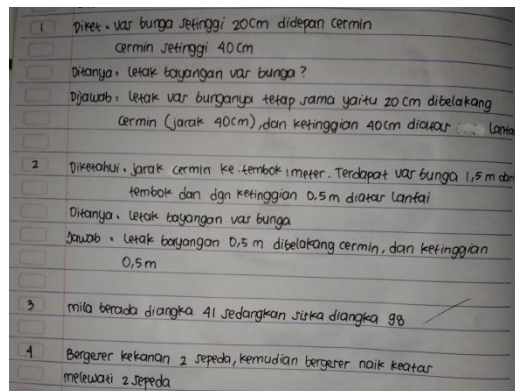 1 Diket. vas bunga setinggi 20cm didepan cermin
cermin setinggi 40 cm
Ditanya: letak bayangan vas bunga?
Dijawab: letak vas bunganya tetap sama yaitu 20 cm dibelakang
cermin (jarak 40cm), dan ketinggian 40cm diatas lantai
2 Diketahui. jarak cermin ke tembok 1 meter. Terdapat vas bunga 1,5 m dari
tembok dan dgn ketinggian 0.5 m diatas lantai
Ditanya. letak bayangan vas bunga
Jawab: letak bayangan 0,5 m dibelakang cermin, dan ketinggian
0,5 m
3 mila berada diangka 41 sedangkan siska diangka 98
4 Bergeser kekanan 2 sepeda, kemudian bergeser naik keatas
melewati 2 sepeda